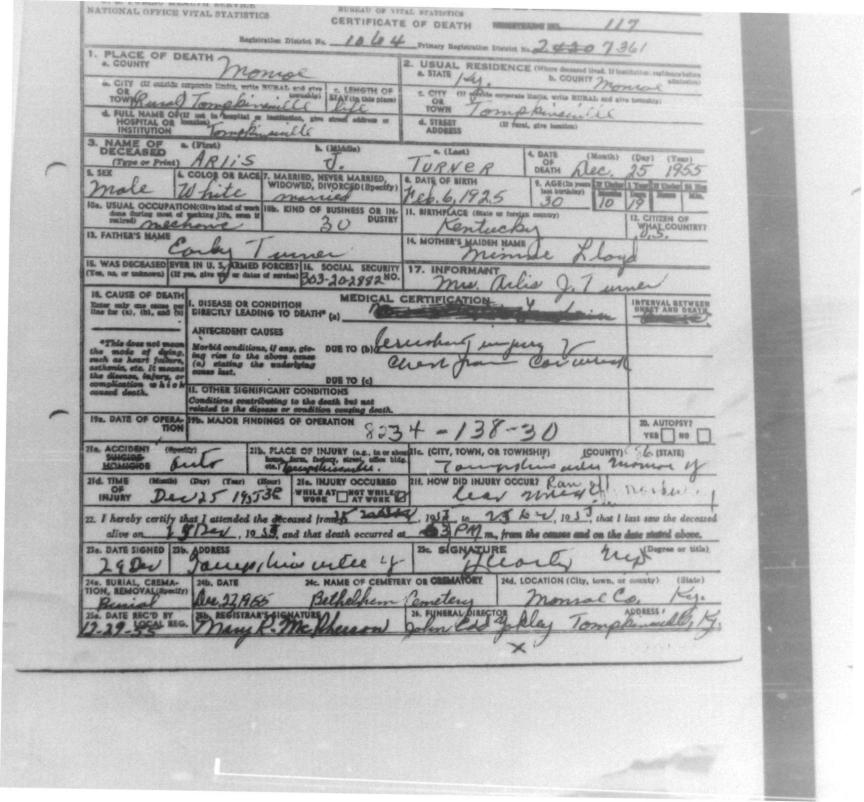 NATIONAL OFFICE VITAL STATISTICS
BUREAU OF VITAL STATISTICS
CERTIFICATE OF DEATH
REGISTRAR'S NO. 117
Registration District No. 1064 Primary Registration District No. 7361
1. PLACE OF DEATH
a. COUNTY Monroe
2. USUAL RESIDENCE (Where deceased lived. If institution: residence before admission)
a. STATE Ky. b. COUNTY Monroe
b. CITY (If outside corporate limits, write RURAL and give township) OR TOWN Rural Tompkinsville
c. LENGTH OF STAY (in this place) life
c. CITY (If outside corporate limits, write RURAL and give township) OR TOWN Tompkinsville
d. FULL NAME OF (If not in hospital or institution, give street address or location) HOSPITAL OR INSTITUTION Tompkinsville
d. STREET ADDRESS (If rural, give location)
3. NAME OF DECEASED (Type or Print)
a. (First) ARLIS
b. (Middle) J.
c. (Last) TURNER
4. DATE OF DEATH (Month) (Day) (Year) Dec. 25 1955
5. SEX Male
6. COLOR OR RACE White
7. MARRIED, NEVER MARRIED, WIDOWED, DIVORCED (Specify) married
8. DATE OF BIRTH Feb. 6, 1925
9. AGE (In years last birthday) 30 Months 10 Days 19 Hours Min.
10a. USUAL OCCUPATION (Give kind of work done during most of working life, even if retired) mechanic
10b. KIND OF BUSINESS OR INDUSTRY 30
11. BIRTHPLACE (State or foreign country) Kentucky
12. CITIZEN OF WHAT COUNTRY? U.S.
13. FATHER'S NAME Turner
14. MOTHER'S MAIDEN NAME Minnie Lloyd
15. WAS DECEASED EVER IN U. S. ARMED FORCES? (Yes, no, or unknown) (If yes, give war or dates of service)
16. SOCIAL SECURITY NO. 303-20-2882
17. INFORMANT Mrs. Arlis J. Turner
18. CAUSE OF DEATH
Enter only one cause per line for (a), (b), and (c)
MEDICAL CERTIFICATION
INTERVAL BETWEEN ONSET AND DEATH
I. DISEASE OR CONDITION DIRECTLY LEADING TO DEATH* (a)
*This does not mean the mode of dying, such as heart failure, asthenia, etc. It means the disease, injury, or complication which caused death.
ANTECEDENT CAUSES
Morbid conditions, if any, giving rise to the above cause (a) stating the underlying cause last.
DUE TO (b) injury
chest from car wreck
DUE TO (c)
II. OTHER SIGNIFICANT CONDITIONS
Conditions contributing to the death but not related to the disease or condition causing death.
19a. DATE OF OPERATION
19b. MAJOR FINDINGS OF OPERATION 8234-138-30
20. AUTOPSY? YES NO
21a. ACCIDENT SUICIDE HOMICIDE (Specify) Auto
21b. PLACE OF INJURY (e.g., in or about home, farm, factory, street, office bldg., etc.)
21c. (CITY, TOWN, OR TOWNSHIP) (COUNTY) (STATE) Monroe Ky
21d. TIME OF INJURY (Month) (Day) (Year) (Hour) Dec 25 1955
21e. INJURY OCCURRED WHILE AT WORK NOT WHILE AT WORK
21f. HOW DID INJURY OCCUR? Ran car wreck
22. I hereby certify that I attended the deceased from , 1955 to 25 , 1955, that I last saw the deceased
alive on Dec, 1955, and that death occurred at 3 PM m., from the causes and on the date stated above.
23a. DATE SIGNED 29 Dec
23b. ADDRESS Tompkinsville Ky
23c. SIGNATURE (Degree or title)
24a. BURIAL, CREMATION, REMOVAL (Specify) Burial
24b. DATE Dec 27, 1955
24c. NAME OF CEMETERY OR CREMATORY Bethelhem Cemetery
24d. LOCATION (City, town, or county) (State) Monroe Co. Ky.
25a. DATE REC'D BY LOCAL REG. 12-29-55
25b. REGISTRAR'S SIGNATURE Mary R. McPherson
26. FUNERAL DIRECTOR ADDRESS John Ed Yokley Tompkinsville Ky.
x